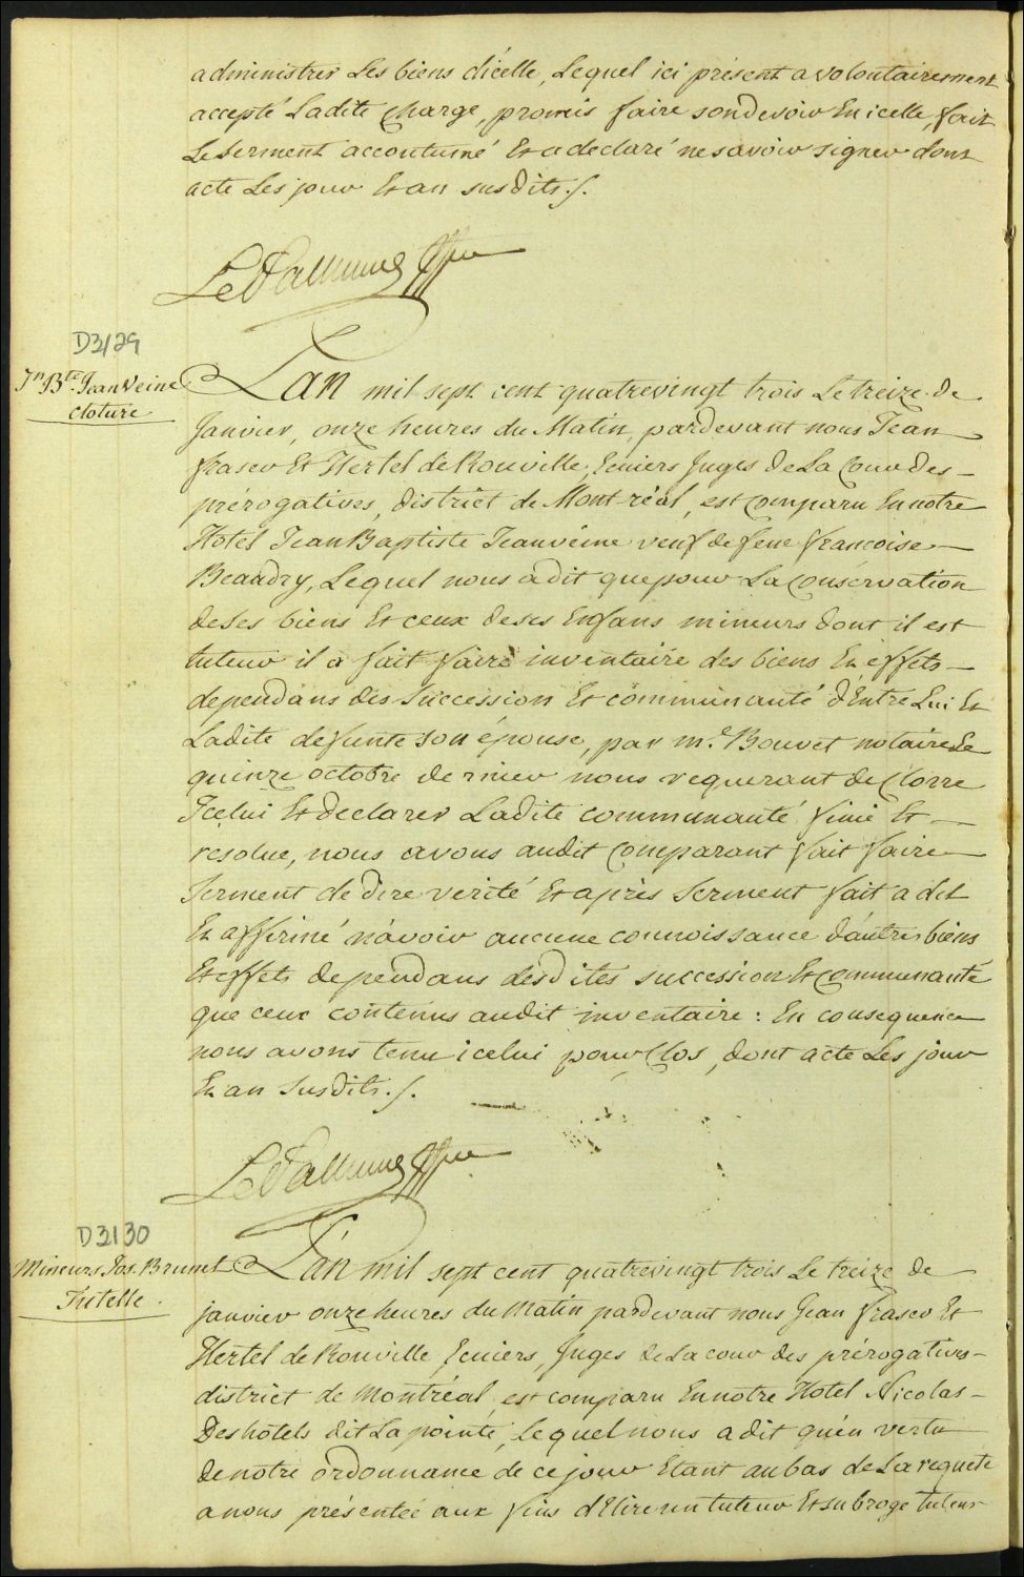 administrer Les biens d'icelle, Lequel ici présent a volontairement
accepté Ladite Charge, promis faire son devoir En icelle, fait
Le Serment accoutumé Et a declaré ne savoir signer dont
acte Les jour Et an susdits ./.
LePallieur Gffier
D3129
Jn Bte Jeanveine
cloture
L'an mil sept cent quatrevingt trois Le treize de
Janvier, onze heures du Matin, pardevant nous Jean
fraser Et Hertel de Rouville, Ecuiers Juges de La Cour des
prérogatives, district de Montréal, est Comparu En notre
Hotel Jean Baptiste Jeanveine veuf de feue francoise
Beaudry, Lequel nous a dit que pour La Conservation
de ses biens Et ceux de ses Enfans mineurs dont il est
tuteur il a fait faire inventaire des biens En effets
dependans des Succession Et communauté d'Entre Lui Et
Ladite defunte son épouse, par me. Bouvet notaire Le
quinze octobre dernier nous requerant de Clorre
Icelui Et declarer Ladite communauté finie Et
resolue, nous avons audit Comparant fait faire
Serment de dire verité Et après Serment fait a dit
Et affirmé n'avoir aucune connoissance d'autres biens
Et effets dependans desdites succession Et Communauté
que ceux contenus audit inventaire : En consequence
nous avons tenu icelui pour Clos, dont acte Les jour
Et an Susdits ./.
LePallieur Gffier
D3130
Mineurs Jos. Brunet
Tutelle
L'an mil sept cent quatrevingt trois Le treize de
janvier onze heures du Matin pardevant nous Jean fraser Et
Hertel de Rouville Ecuiers, Juges de La cour des prérogatives
district de Montréal, est comparu En notre Hotel Nicolas
Deshôtels dit Lapointe, Lequel nous a dit qu'en vertu
de notre ordonnance de ce jour Etant au bas de La requete
a nous présentée aux fins d'Elire un tuteur Et subrogé tuteur